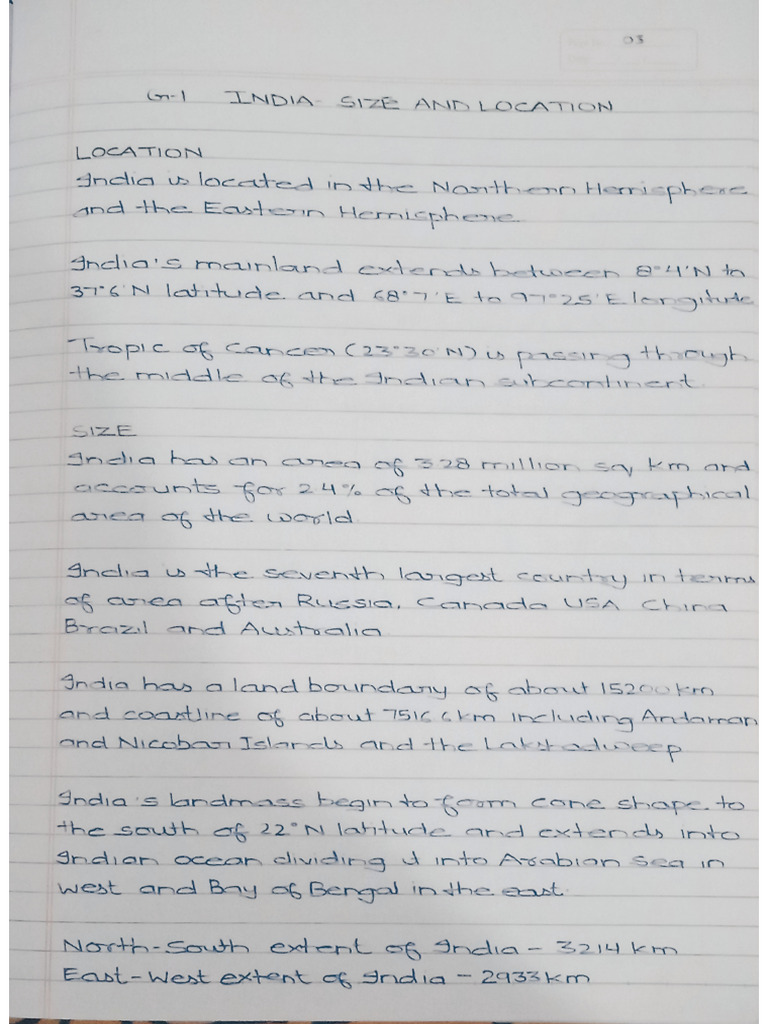 03
G-1 INDIA - SIZE AND LOCATION
LOCATION
India is located in the Northern Hemisphere
and the Eastern Hemisphere
India's mainland extends between 8°4'N to
37°6'N latitude and 68°7'E to 97°25'E longitude
Tropic of Cancer (23°30'N) is passing through
the middle of the Indian subcontinent.
SIZE
India has an area of 3.28 million sq km and
accounts for 2.4% of the total geographical
area of the world
India is the seventh largest country in terms
of area after Russia, Canada USA China
Brazil and Australia
India has a land boundary of about 15200 km
and coastline of about 7516.6 km including Andaman
and Nicobar Islands and the Lakshadweep
India's landmass begin to form cone shape to
the south of 22°N latitude and extends into
Indian ocean dividing it into Arabian sea in
west and Bay of Bengal in the east.
North-South extent of India - 3214 km
East-West extent of India - 2933 km